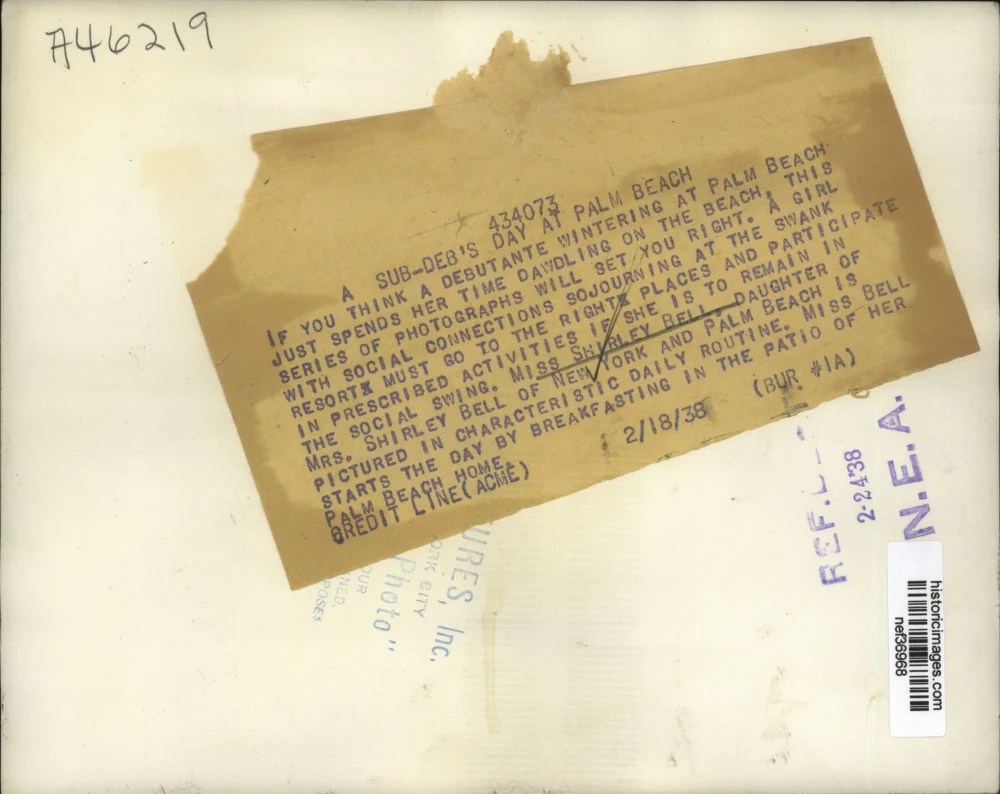 A46219
434073
A SUB-DEB'S DAY AT PALM BEACH
IF YOU THINK A DEBUTANTE WINTERING AT PALM BEACH
JUST SPENDS HER TIME DAWDLING ON THE BEACH, THIS
SERIES OF PHOTOGRAPHS WILL SET YOU RIGHT. A GIRL
WITH SOCIAL CONNECTIONS SOJOURNING AT THE SWANK
RESORT MUST GO TO THE RIGHT PLACES AND PARTICIPATE
IN PRESCRIBED ACTIVITIES IF SHE IS TO REMAIN IN
THE SOCIAL SWING. MISS SHIRLEY BELL, DAUGHTER OF
MRS. SHIRLEY BELL OF NEW YORK AND PALM BEACH IS
PICTURED IN CHARACTERISTIC DAILY ROUTINE. MISS BELL
STARTS THE DAY BY BREAKFASTING IN THE PATIO OF HER
PALM BEACH HOME.
CREDIT LINE(ACME) 2/18/38 (BUR. #1A)
URES, Inc.
ORK CITY
Photo"
OUR
NED.
POSES
REF.
2-24-38
N.E.A.
historicimages.com
nef36968